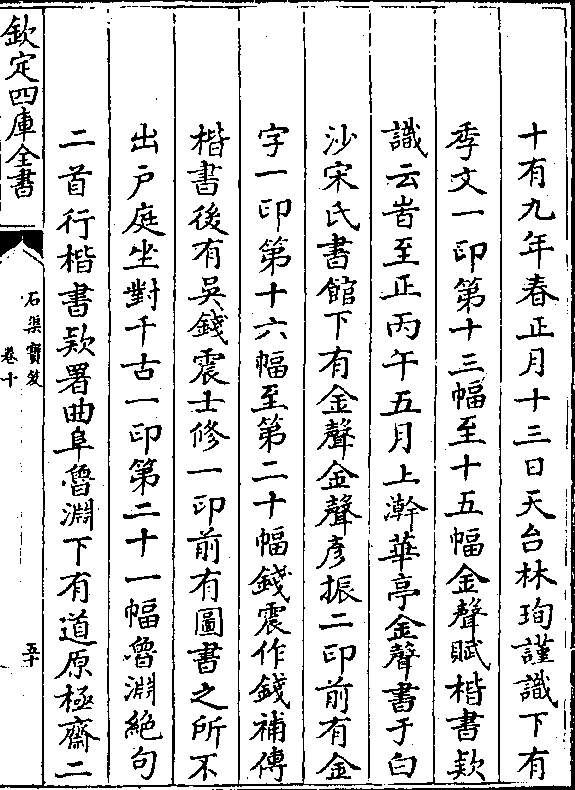 十有九年春正月十三日天台林珣謹識下有
季文一印第十三幅至十五幅金聲賦楷書款
識云旹至正丙午五月上澣華亭金聲書于白
沙宋氏書館下有金聲金聲彥振二印前有金
字一印第十六幅至第二十幅錢震作錢補傳
楷書後有吳錢震士修一印前有圖書之所不
出戸庭坐對千古一印第二十一幅魯淵絕句
二首行楷書款署曲阜魯淵下有道原極齋二
欽定四庫全書
石渠寶笈
卷十
五十